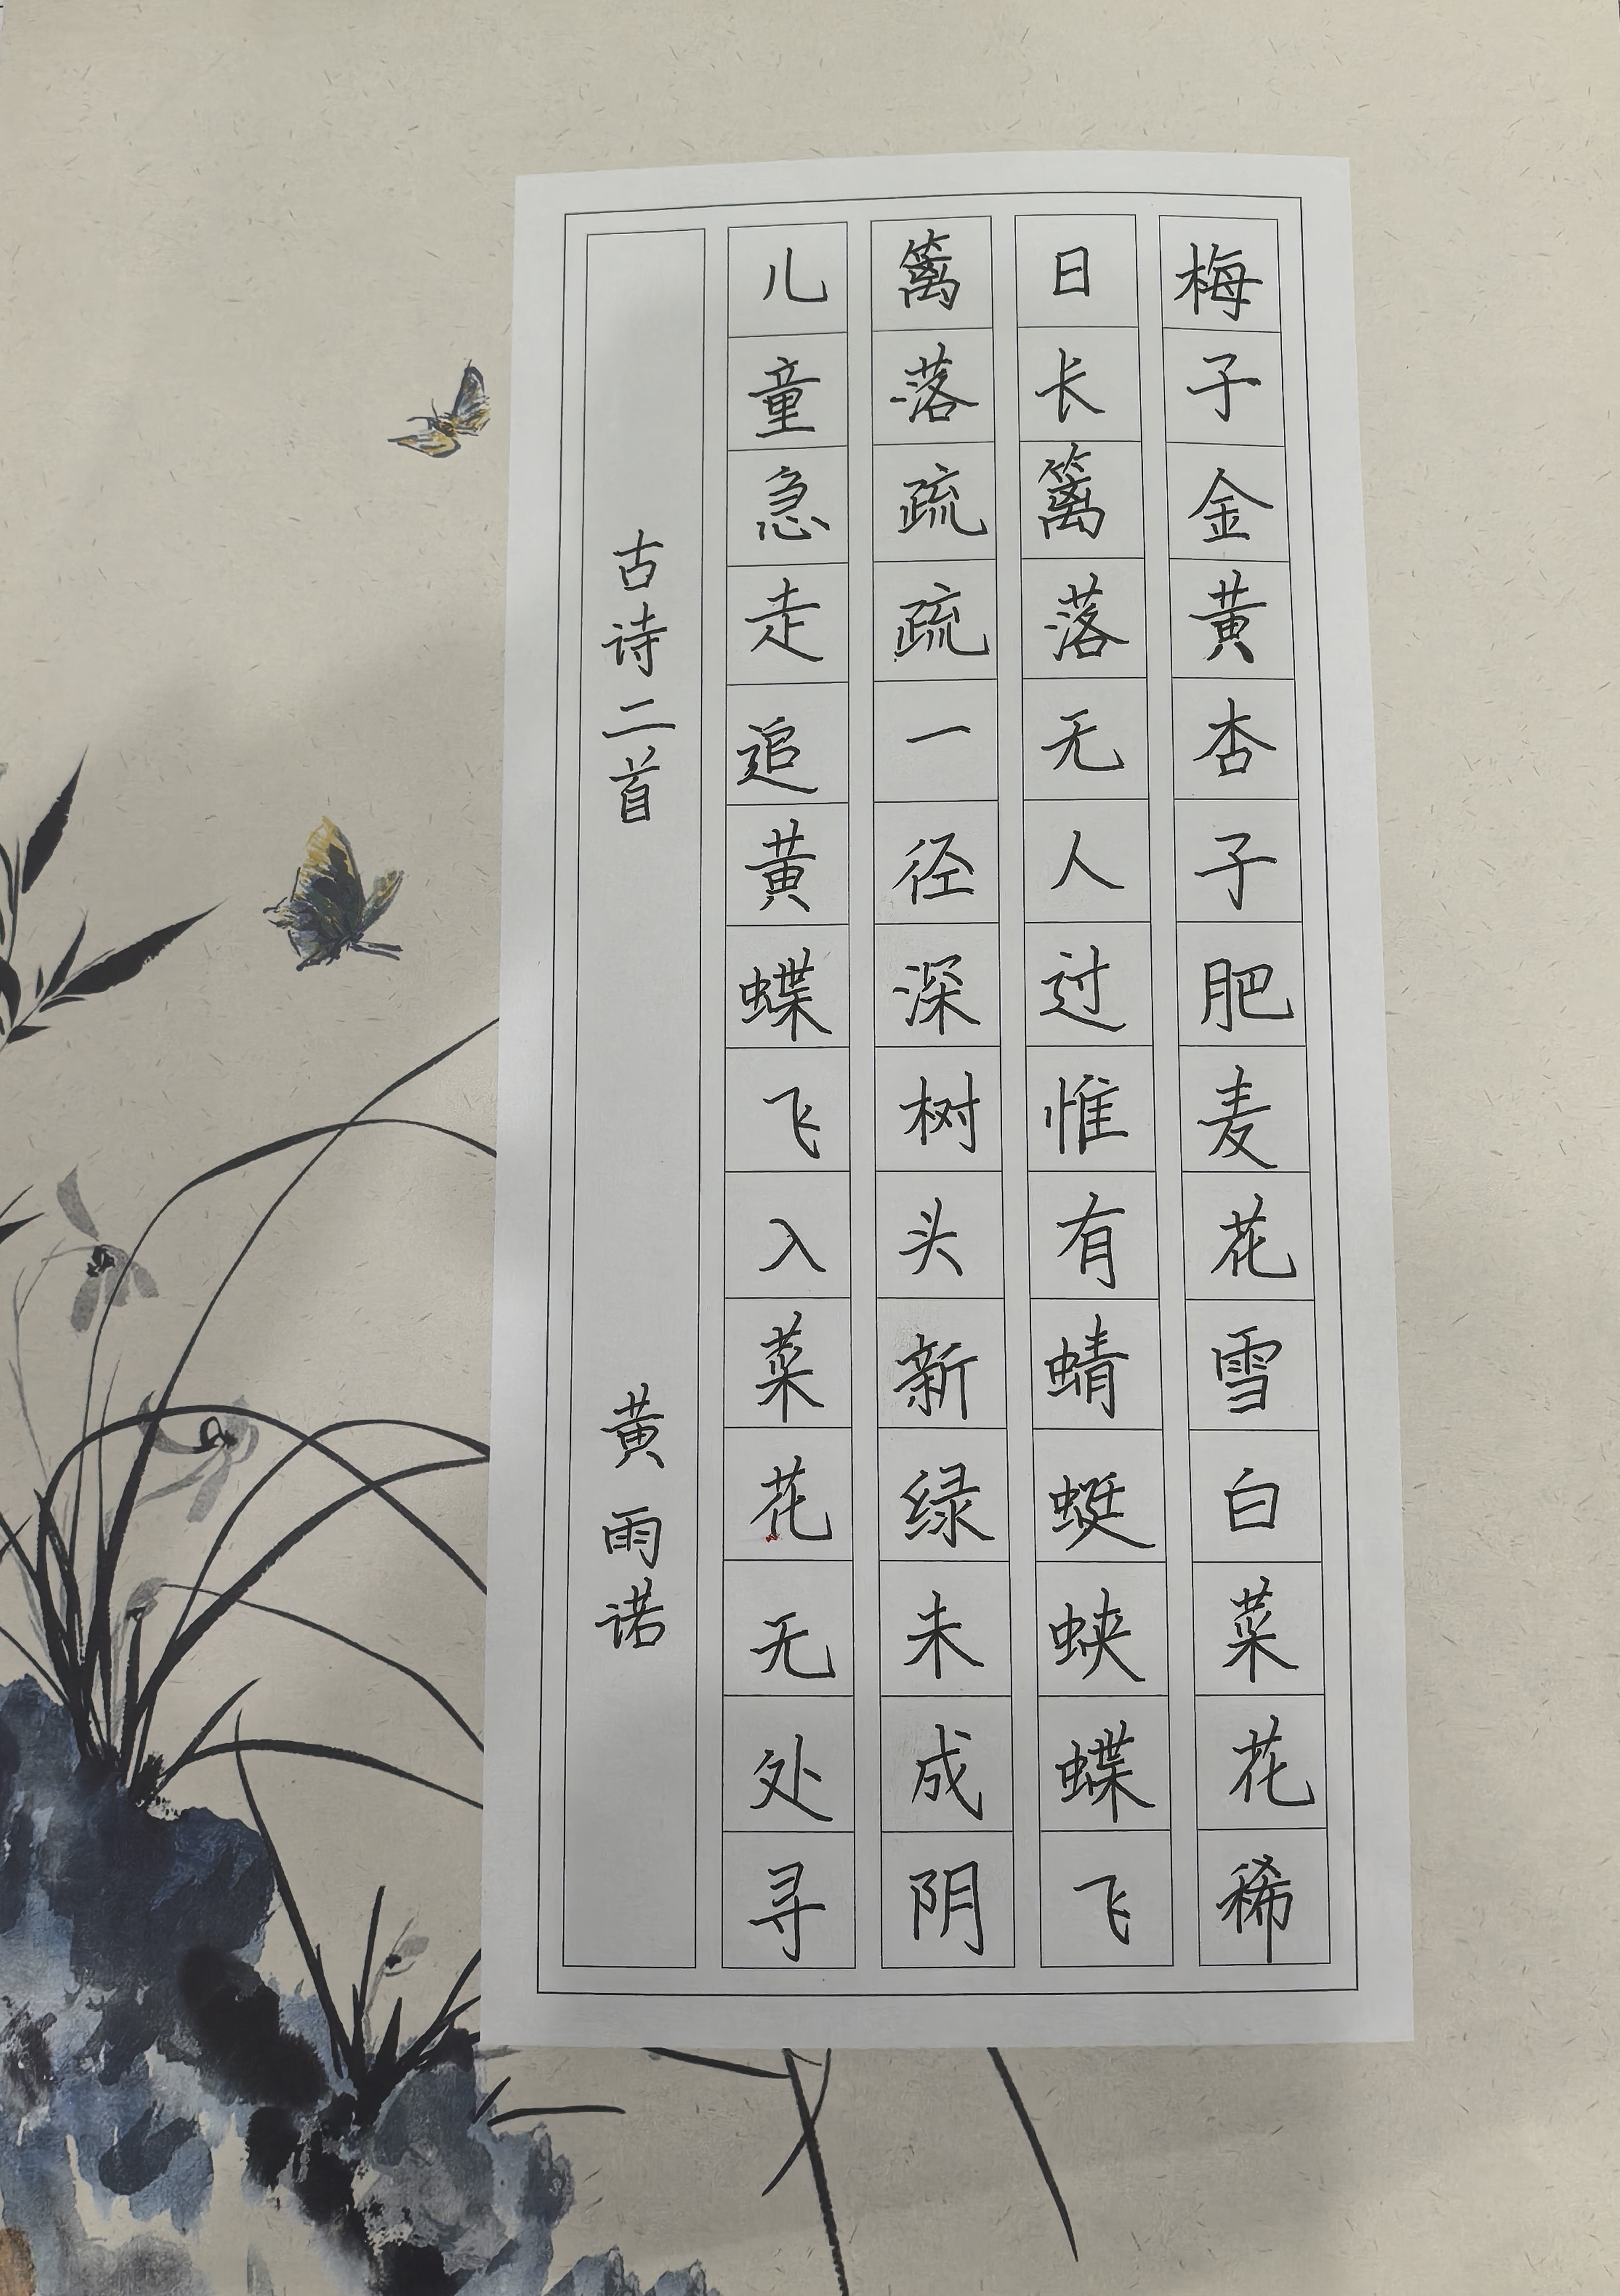 梅子金黄杏子肥麦花雪白菜花稀
日长篱落无人过惟有蜻蜓蛱蝶飞
篱落疏疏一径深树头新绿未成阴
儿童急走追黄蝶飞入菜花无处寻
古诗二首 黄雨诺